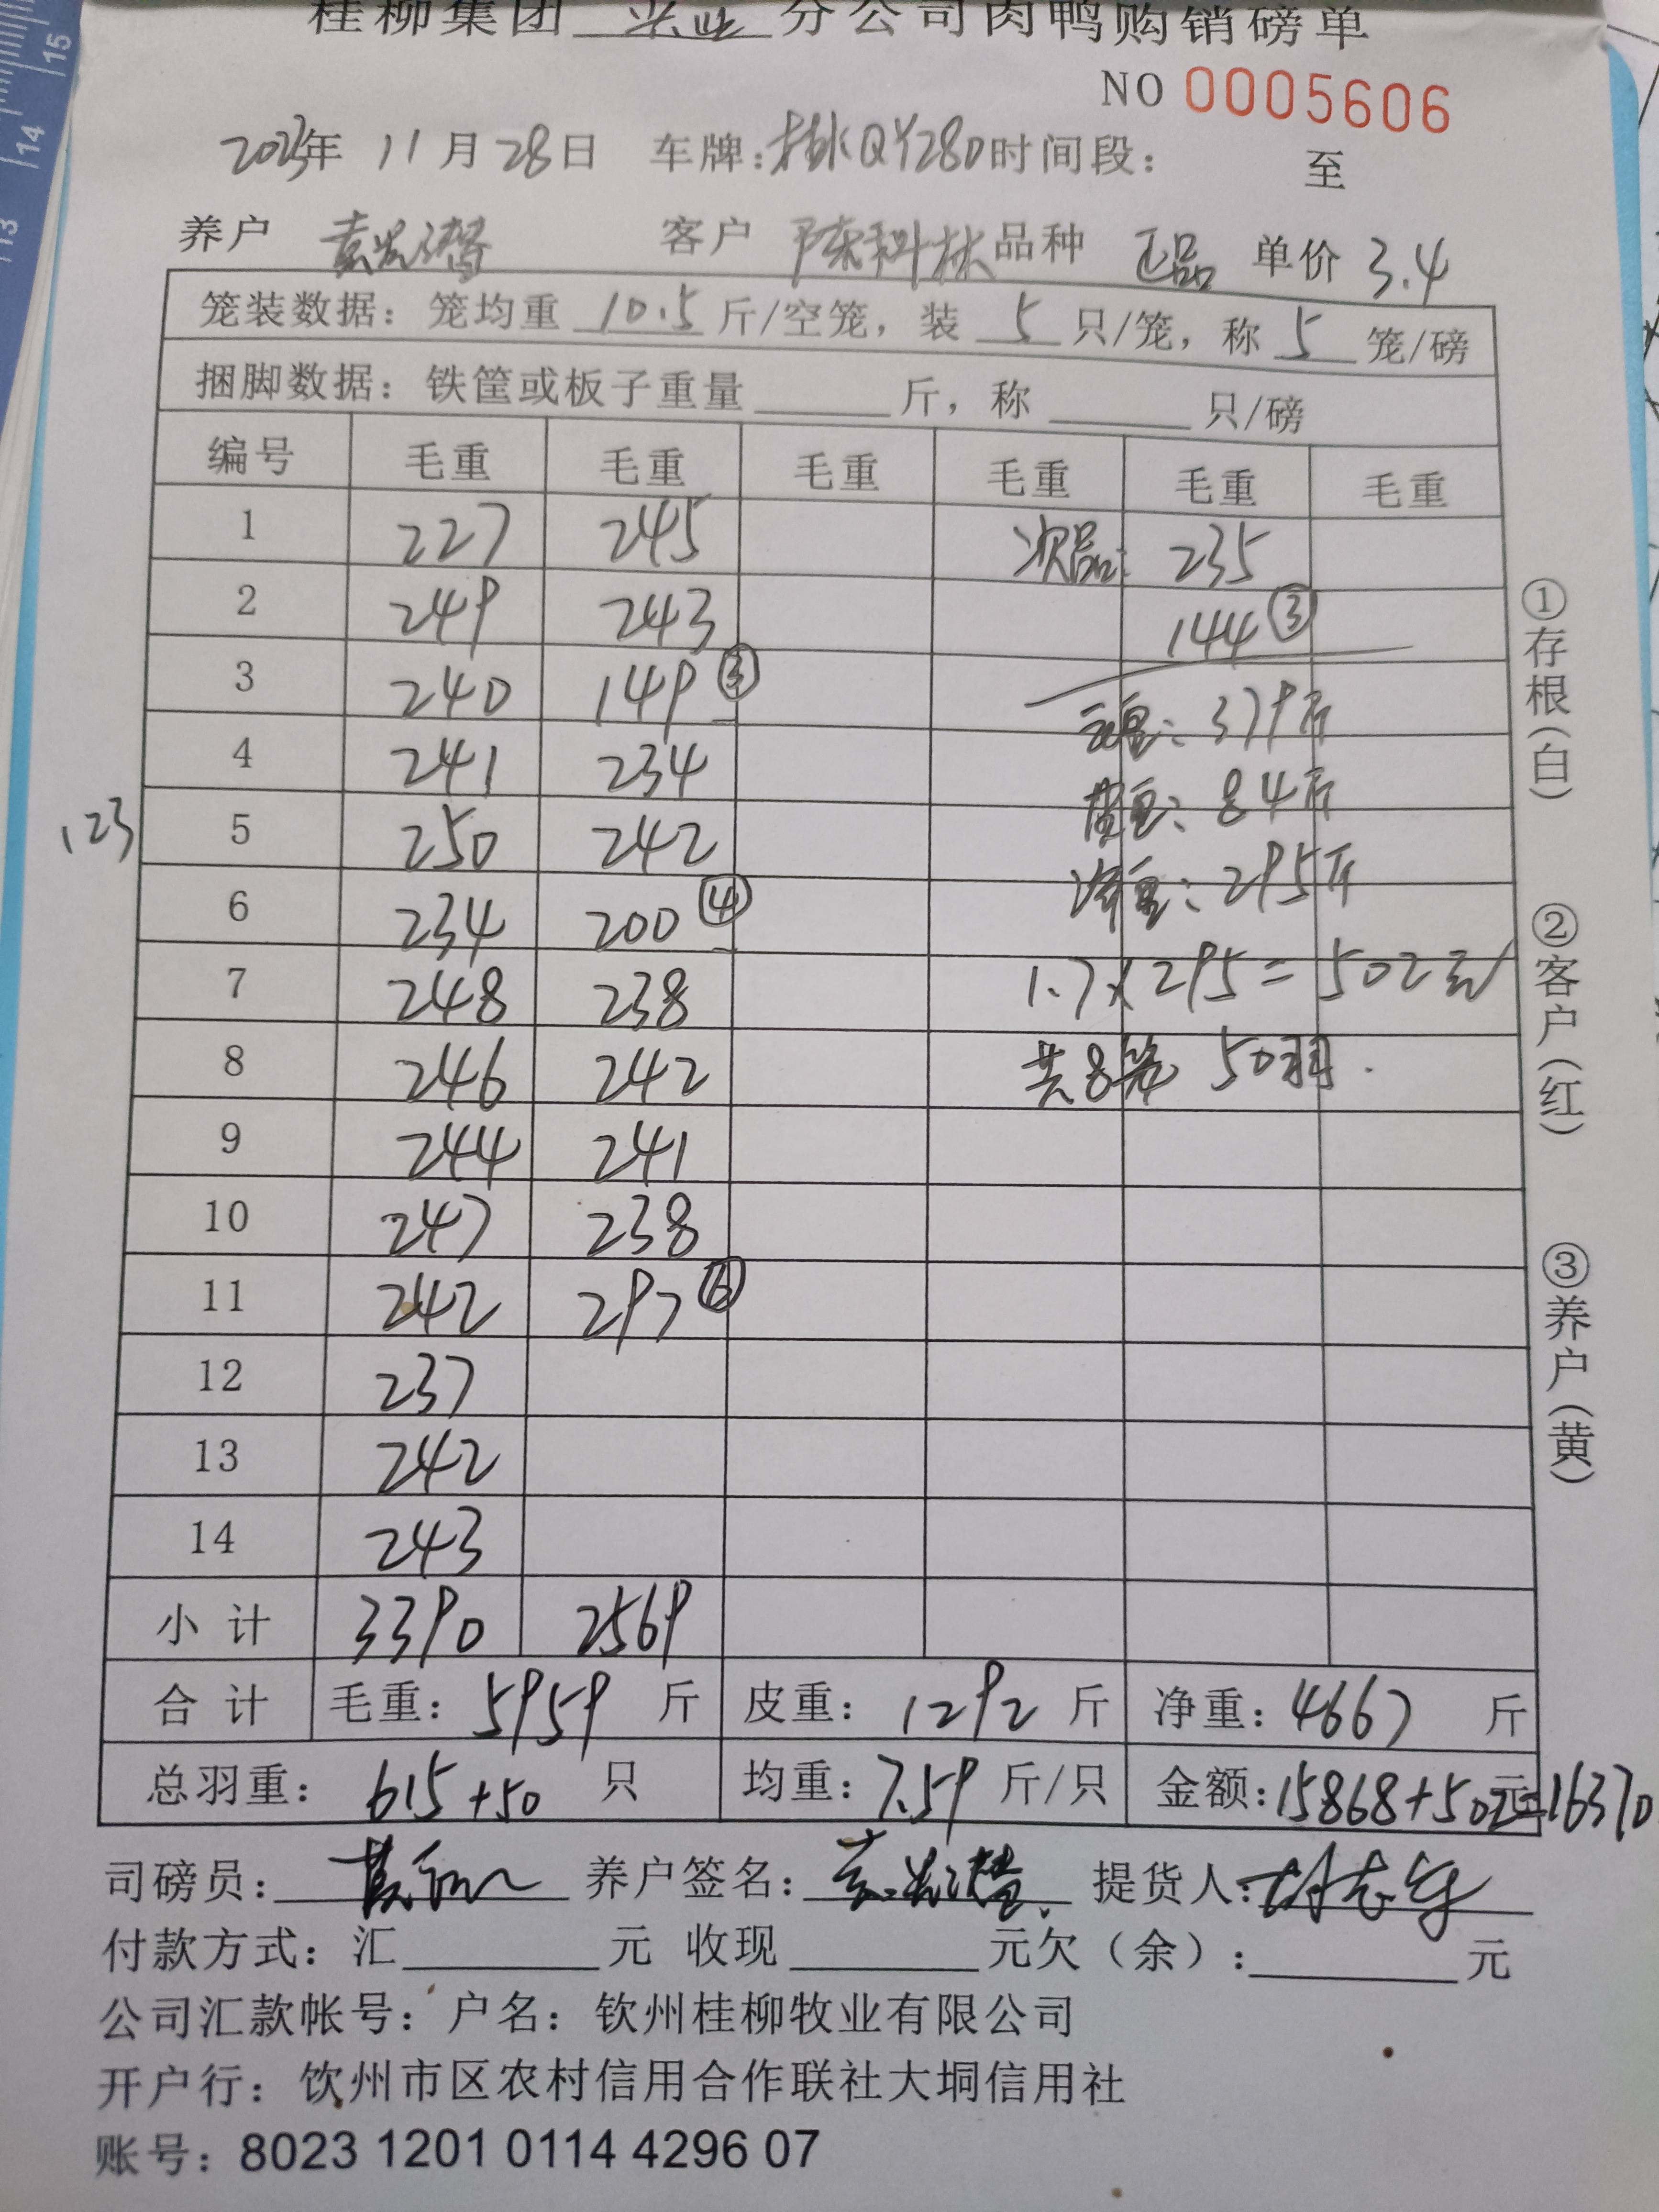 桂柳集团 兴业 分公司肉鸭购销磅单
NO 0005606
2023年 11月28日 车牌:桂KQY280时间段: 至
养户 客户 陈科林 品种 正品 单价 3.4
笼装数据: 笼均重 10.5 斤/空笼, 装 5 只/笼, 称 5 笼/磅
捆脚数据: 铁筐或板子重量 斤, 称 只/磅
编号 毛重 毛重 毛重 毛重 毛重 毛重
1 227 245 次品: 235
2 249 243 144③
3 240 149③ 毛重: 379斤
4 241 234 皮重: 84斤
123 5 250 242 净重: 295斤
6 234 200④
7 248 238 1.7×295=502元
8 246 242 共8笼 50羽.
9 244 241
10 247 238
11 242 297⑥
12 237
13 242
14 243
小计 3390 2569
合计 毛重: 5959 斤 皮重: 1292 斤 净重: 4667 斤
总羽重: 615+50 只 均重: 7.59 斤/只 金额: 15868+502元=16370
司磅员: 养户签名: 提货人:
付款方式: 汇 元 收现 元欠(余): 元
公司汇款帐号: 户名: 钦州桂柳牧业有限公司
开户行: 饮州市区农村信用合作联社大垌信用社
账号: 8023 1201 0114 4296 07
①存根(白)
②客户(红)
③养户(黄)
15
14
13